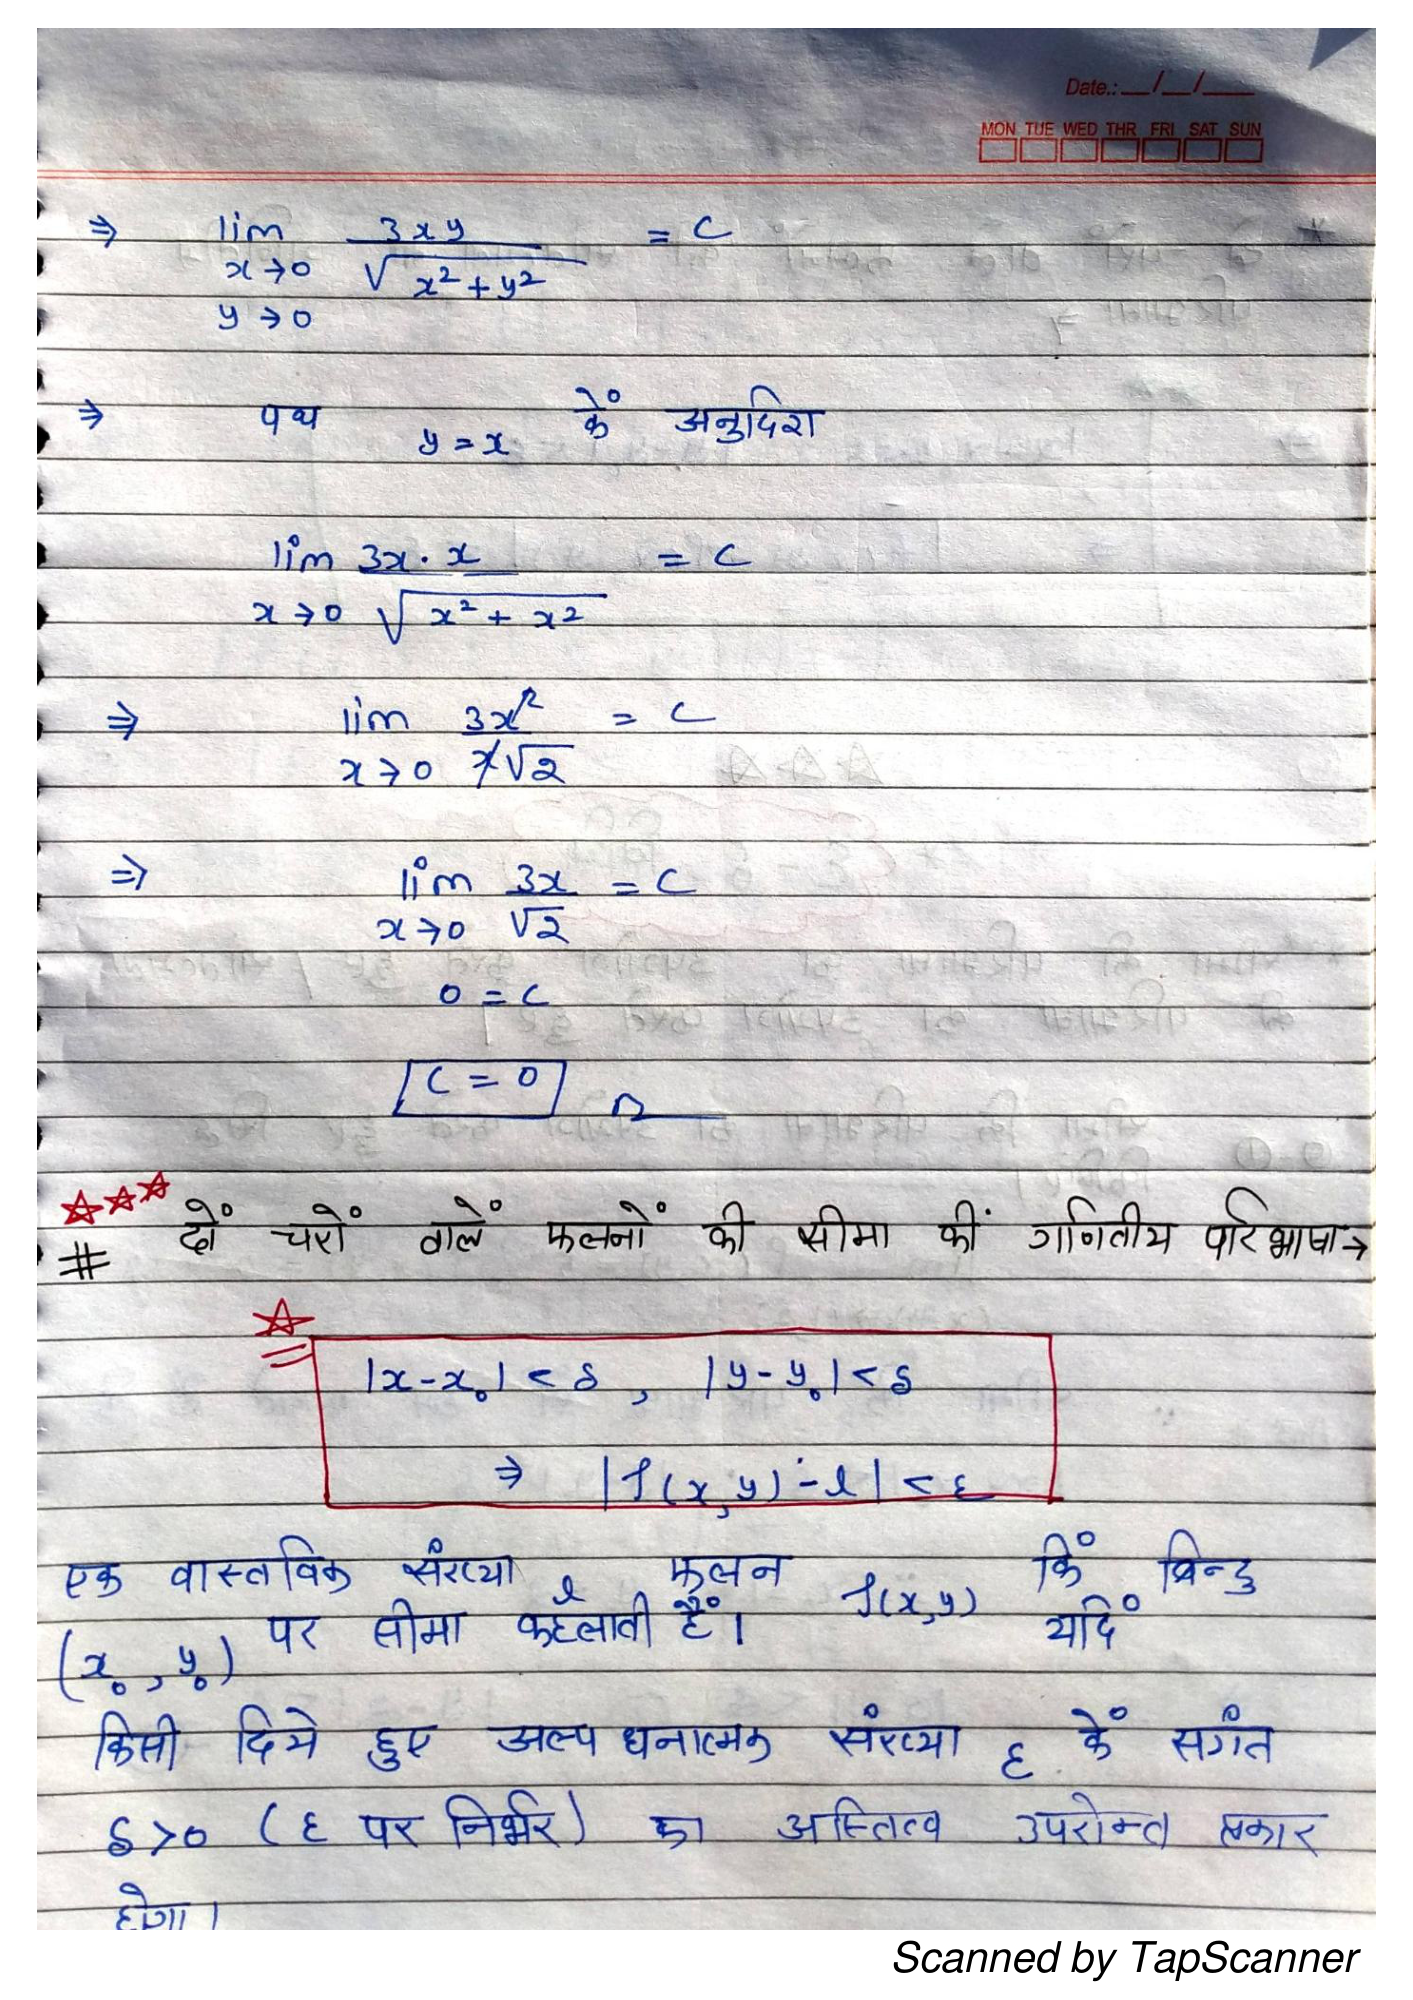 Date.: __/__/___
MON TUE WED THR FRI SAT SUN
⇒ lim 3xy = C
x→0 √x²+y²
y→0
⇒ पथ y = x कें अनुदिश
lim 3x·x = C
x→0 √x²+x²
⇒ lim 3x² = C
x→0 x√2
⇒ lim 3x = C
x→0 √2
0 = C
C = 0
# दों चरों वालें फलनों की सीमा कीं गणितीय परिभाषा→
|x-x₀| < δ , |y-y₀| < δ
⇒ |f(x,y)-l| < ε
एक वास्तविक संख्या l फलन f(x,y) किं बिन्दु
(x₀, y₀) पर सीमा कहलाती हैं। यदिं
किसी दिये हुए अल्प धनात्मक संख्या ε कें सगंत
δ>0 (ε पर निर्भर) का अस्तित्व उपरोक्त प्रकार
होगा।
Scanned by TapScanner